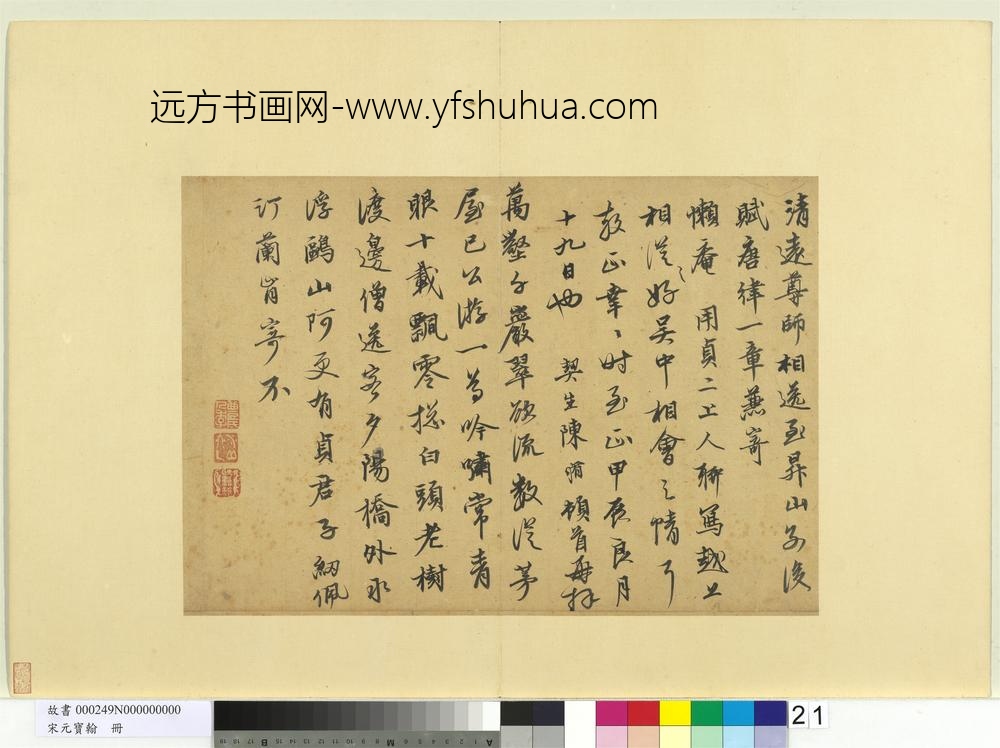 远方书画网-www.yfshuhua.com
清遠尊師相送至昇山別後
賦唐律一章兼寄
懶庵 用貞二上人聊寫越上
相從之好吳中相會之情耳
教正幸〻時至正甲辰良月
十九日也 契生陳 頓首再拜
萬壑千巖翠欲流數從茅
屋已公游一尊吟嘯常青
眼十載飄零總白頭老樹
渡邊僧送客夕陽橋外水
浮鷗山阿更有貞君子紉佩
汀蘭肯寄不
故書 000249N000000000
宋元寶翰 冊
21